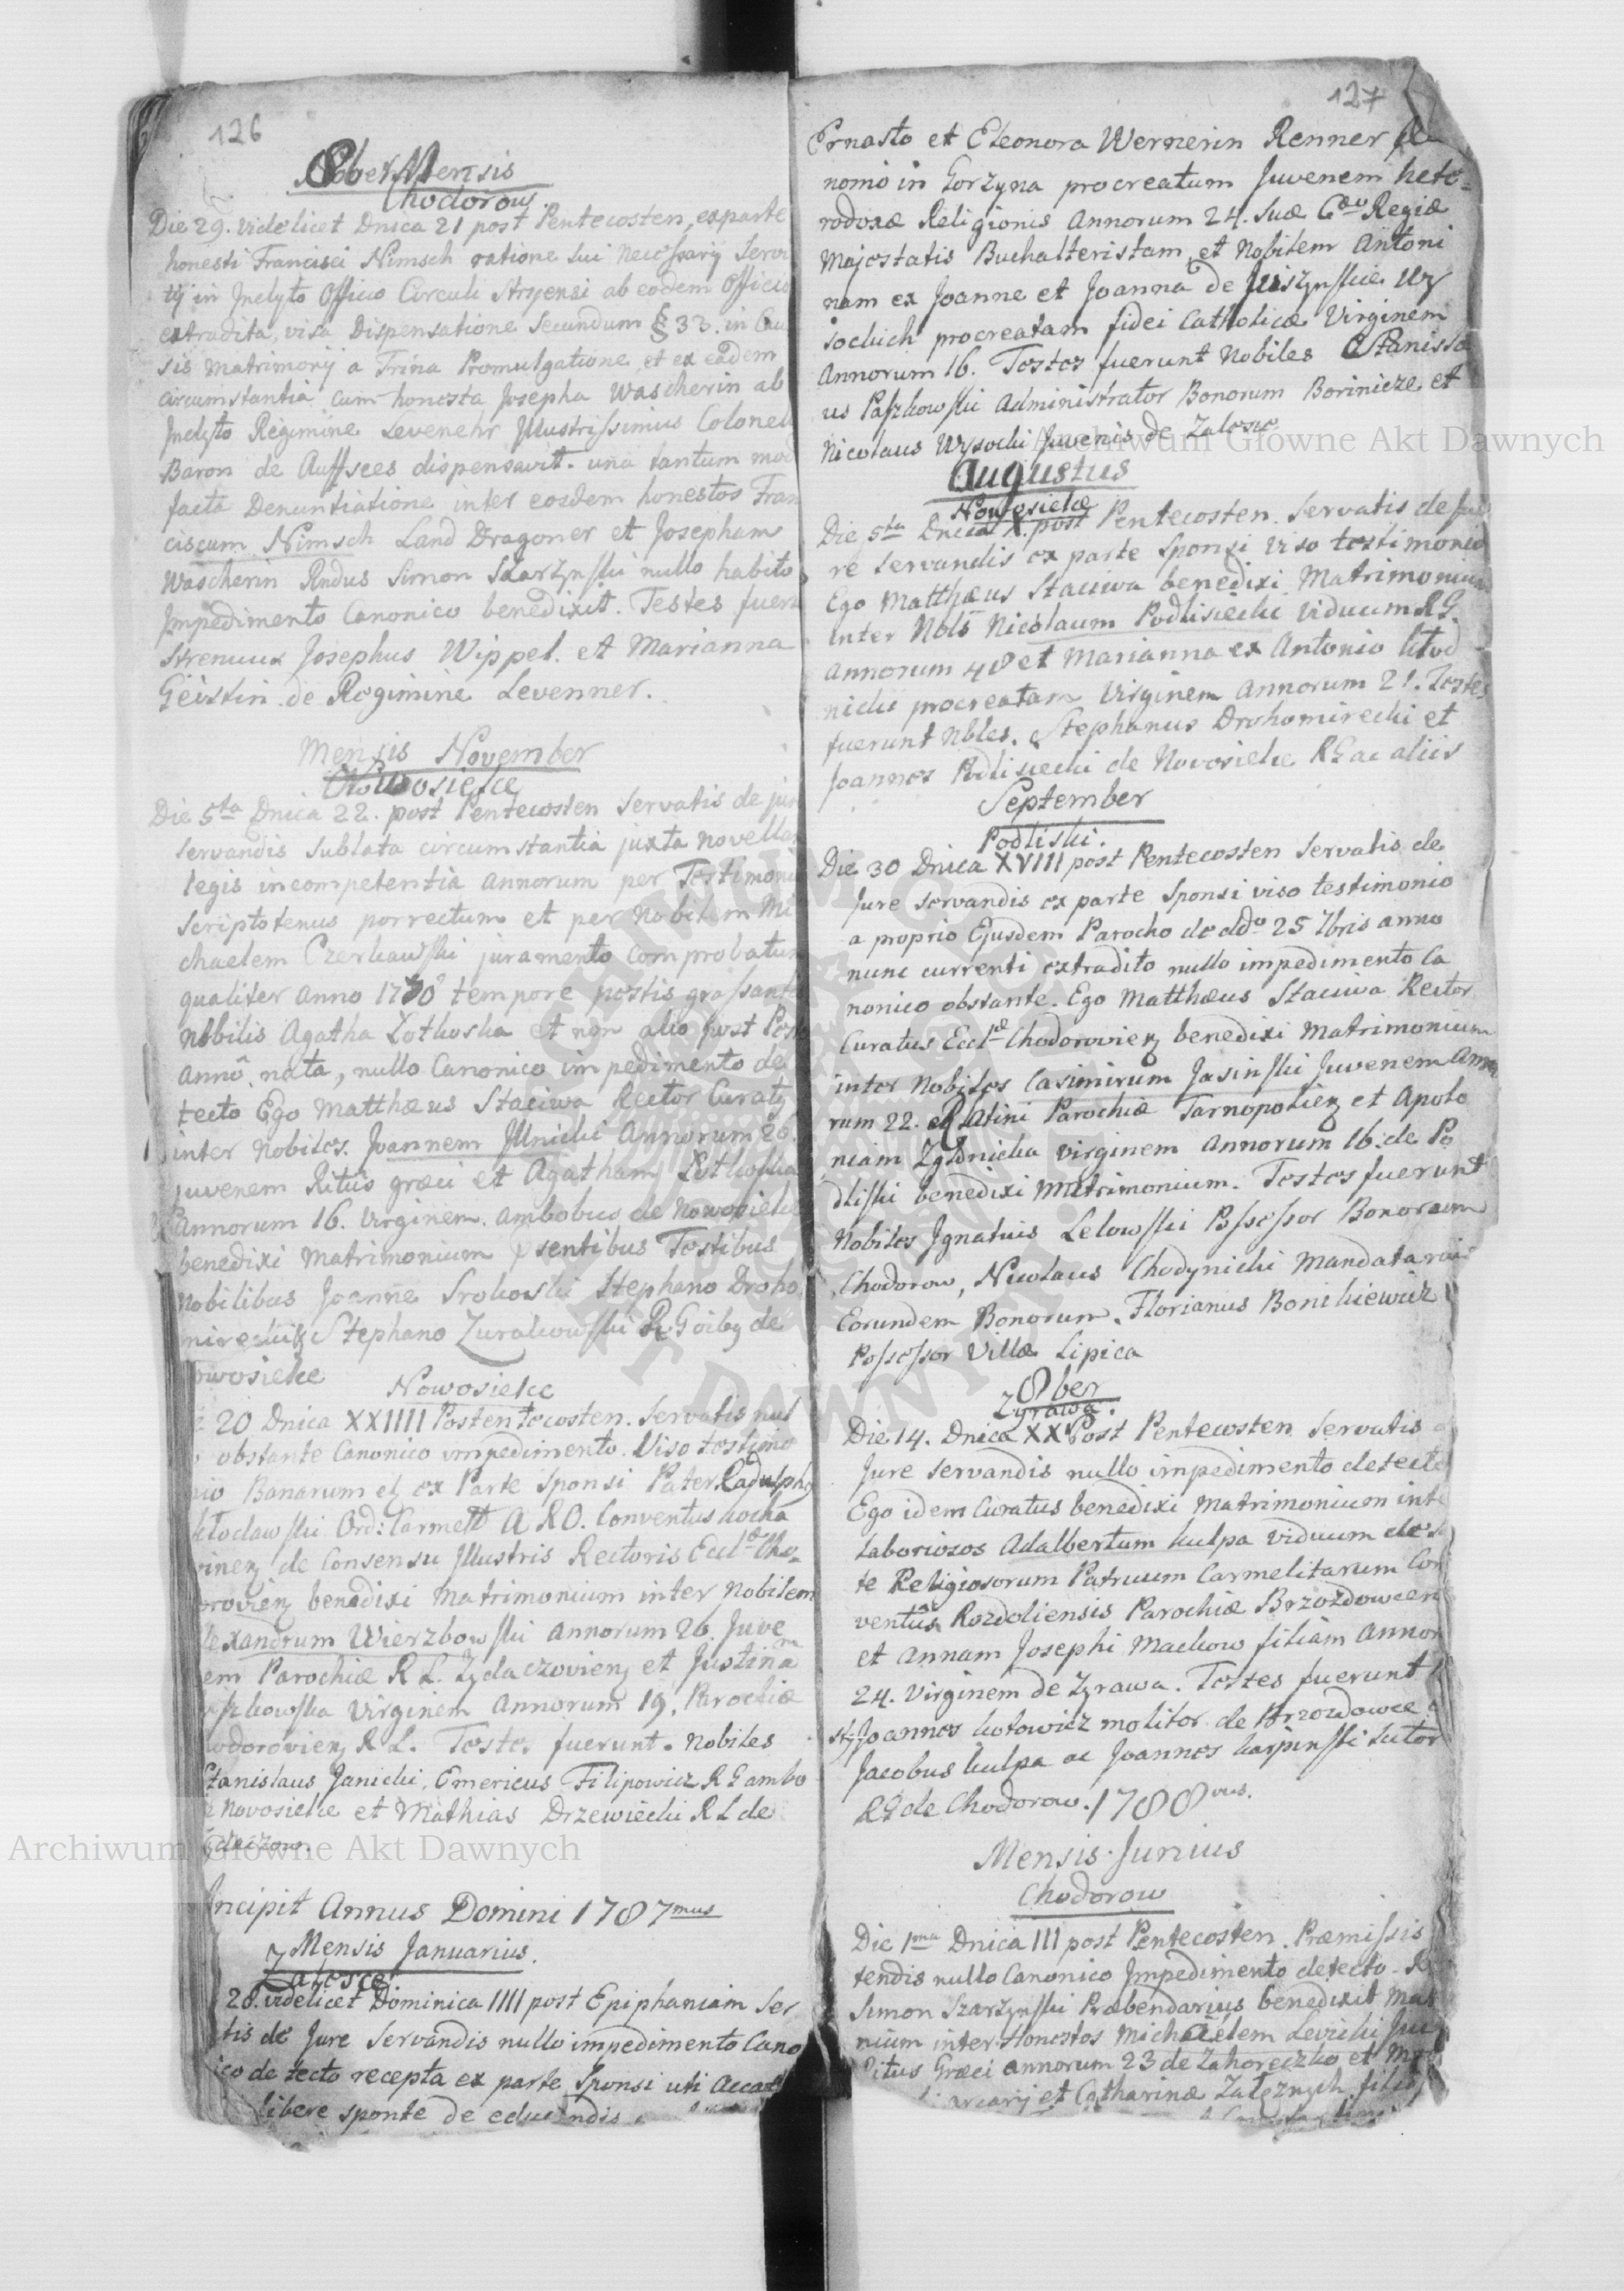 126
8ber Mensis
Chodorow.
Die 29. videlicet Dnica 21 post Pentecosten, ex parte
honesti Francisci Nimsch ratione sui necessarij Servi
tij in Inclyto Officio Circuli Stryensi ab eodem Officio
extradita, visa Dispensatione secundum § 33. in Cau
sis Matrimonij a Trina Promulgatione, et ex eadem
circumstantia cum honesta Josepha Wascherin ab
Inclyto Regimine Levenehr Illustrissimus Colonell
Baron de Auffsees dispensavit. una tantum mod
facta Denuntiatione inter eosdem honestos Fran
ciscum Nimsch Land Dragoner et Josepham
Wascherin Rndus Simon Skarzynski nullo habito
Impedimento Canonico benedixit. Testes fuere
Strenuus Josephus Wippel. et Marianna
Geistin de Regimine Levenner.
Mensis November
Nowosielce
Die 5ta Dnica 22. post Pentecosten servatis de jure
servandis sublata circumstantia juxta novellam
legis incompetentia annorum per Testimoni
scriptotenus porrectum et per Nobilem Mi
chaelem Czerkawski juramento comprobatum
qualiter anno 1770 tempore pestis grassante
nobilis Agatha Zotkoska et non alio post Pest
anno nata, nullo Canonico impedimento de
tecto Ego Matthæus Staciwa Rector Curatg
inter Nobiles. Joannem Ilnicki Annorum 20.
juvenem Ritus græci et Agatham Zotkoska
Annorum 16. Virginem. ambobus de Nowosielce
benedixi Matrimonium psentibus Testibus
Nobilibus Joanne Srokoski Stephano Droho
mirecki et Stephano Zurakowski R Goibg de
owosielce
Nowosielce
20 Dnica XXIIII Post entecosten. Servatis nul
obstante Canonico impedimento. Viso testimo
nio Banarum et ex Parte Sponsi Pater Radulphg
Ord: Carmelit A R O. Conventus
de Consensu Illustris Rectoris Eccl Cho
orovien benedixi Matrimonium inter Nobilem
lexandrum Wierzbowski annorum 26. Juve
em Parochiæ R L. Zydaczovien et Justinam
szkowska Virginem Annorum 19. Parochiæ
odorovien R L. Testes fuerunt. Nobiles
Stanislaus Janicki, Emericus Filipowicz R G ambo
e Novosielce et Mathias Drzewiecki R L de

Incipit Annus Domini 1787mus
Mensis Januarius.
Zalesce.
28. videlicet Dominica IIII post Epiphaniam Ser
tis de Jure servandis nullo impedimento Cano
ico detecto recepta ex parte Sponsi uti
libere sponte de educandis
127
Ernasto et Eleonora Wernerin Renner
nomo in Gorzyna procreatum Juvenem hete
rodoxæ Religionis Annorum 24. Suæ Cæo Regiæ
Majestatis Buchalteristam et Nobilem Antoni
nam ex Joanne et Joanna de Wy
sockich procreatam fidei Catholicæ Virginem
Annorum 16. Testes fuerunt Nobiles Stanisla
us Paszkowski Administrator Bonorum Borinicze et
Nicolaus Wysocki Juvenis de Zalesce
Augustus
Nowosielce
Die 5ta Dnica X. post Pentecosten. Servatis de ju
re servandis ex parte Sponsi viso testimonio
Ego Matthæus Staciwa benedixi Matrimonium
inter Nbls Nicolaum Podlisiecki viduum R G.
Annorum 40 et Marianna ex Antonio
nicki procreatam Virginem Annorum 21. Testes
fuerunt Nbles. Stephanus Drohomirecki et
Joannes Podlisiecki de Novosielce R G ac aliis
September
Podliski.
Die 30 Dnica XVIII post Pentecosten Servatis de
Jure servandis ex parte Sponsi viso testimonio
a proprio Ejusdem Parocho de ddo 25 7bris anno
nunc currenti extradito nullo impedimento Ca
nonico obstante. Ego Matthæus Staciwa Rector
Curatus Eccl Chodorovien benedixi Matrimonium
inter Nobiles Casimirum Jasinski Juvenem Anno
rum 22. R Latini Parochiæ Tarnopolien et Apolo
niam virginem Annorum 16. de Po
dliski benedixi Matrimonium. Testes fuerunt
Nobiles Ignatius Lelowski Possessor Bonorum
Chodorow, Nicolaus Chodynicki Mandatarius
Eorundem Bonorum. Florianus Bonikiewicz
Possessor Villæ Lipica
8ber
Zyrawa.
Die 14. Dnica XX Post Pentecosten Servatis
Jure servandis nullo impedimento detecto
Ego idem Curatus benedixi Matrimonium inte
laboriosos Adalbertum kulpa viduum de
te Religiosorum Patruum Carmelitarum Con
ventus Rozdoliensis Parochiæ Brzozdowcen
et Annam Josephi Mackow filiam Annor
24. Virginem de Zyrawa. Testes fuerunt
Joannes kotowicz molitor de Brzozdowce
Jacobus kulpa ac Joannes karpinski sutor
R G de Chodorow. 1788vus.
Mensis Junius
Chodorow
Die 1ma Dnica III post Pentecosten. Præmissis
tendis nullo Canonico Impedimento detecto. R
Simon Skarzynski Præbendarius benedixit Mat
nium inter Honestos Michaëlem Levicki Juv
Ritus Græci annorum 23 de Zahoreczko et
et Catharinæ Zaleznych filia
Archiwum Główne Akt Dawnych
Archiwum Główne Akt Dawnych